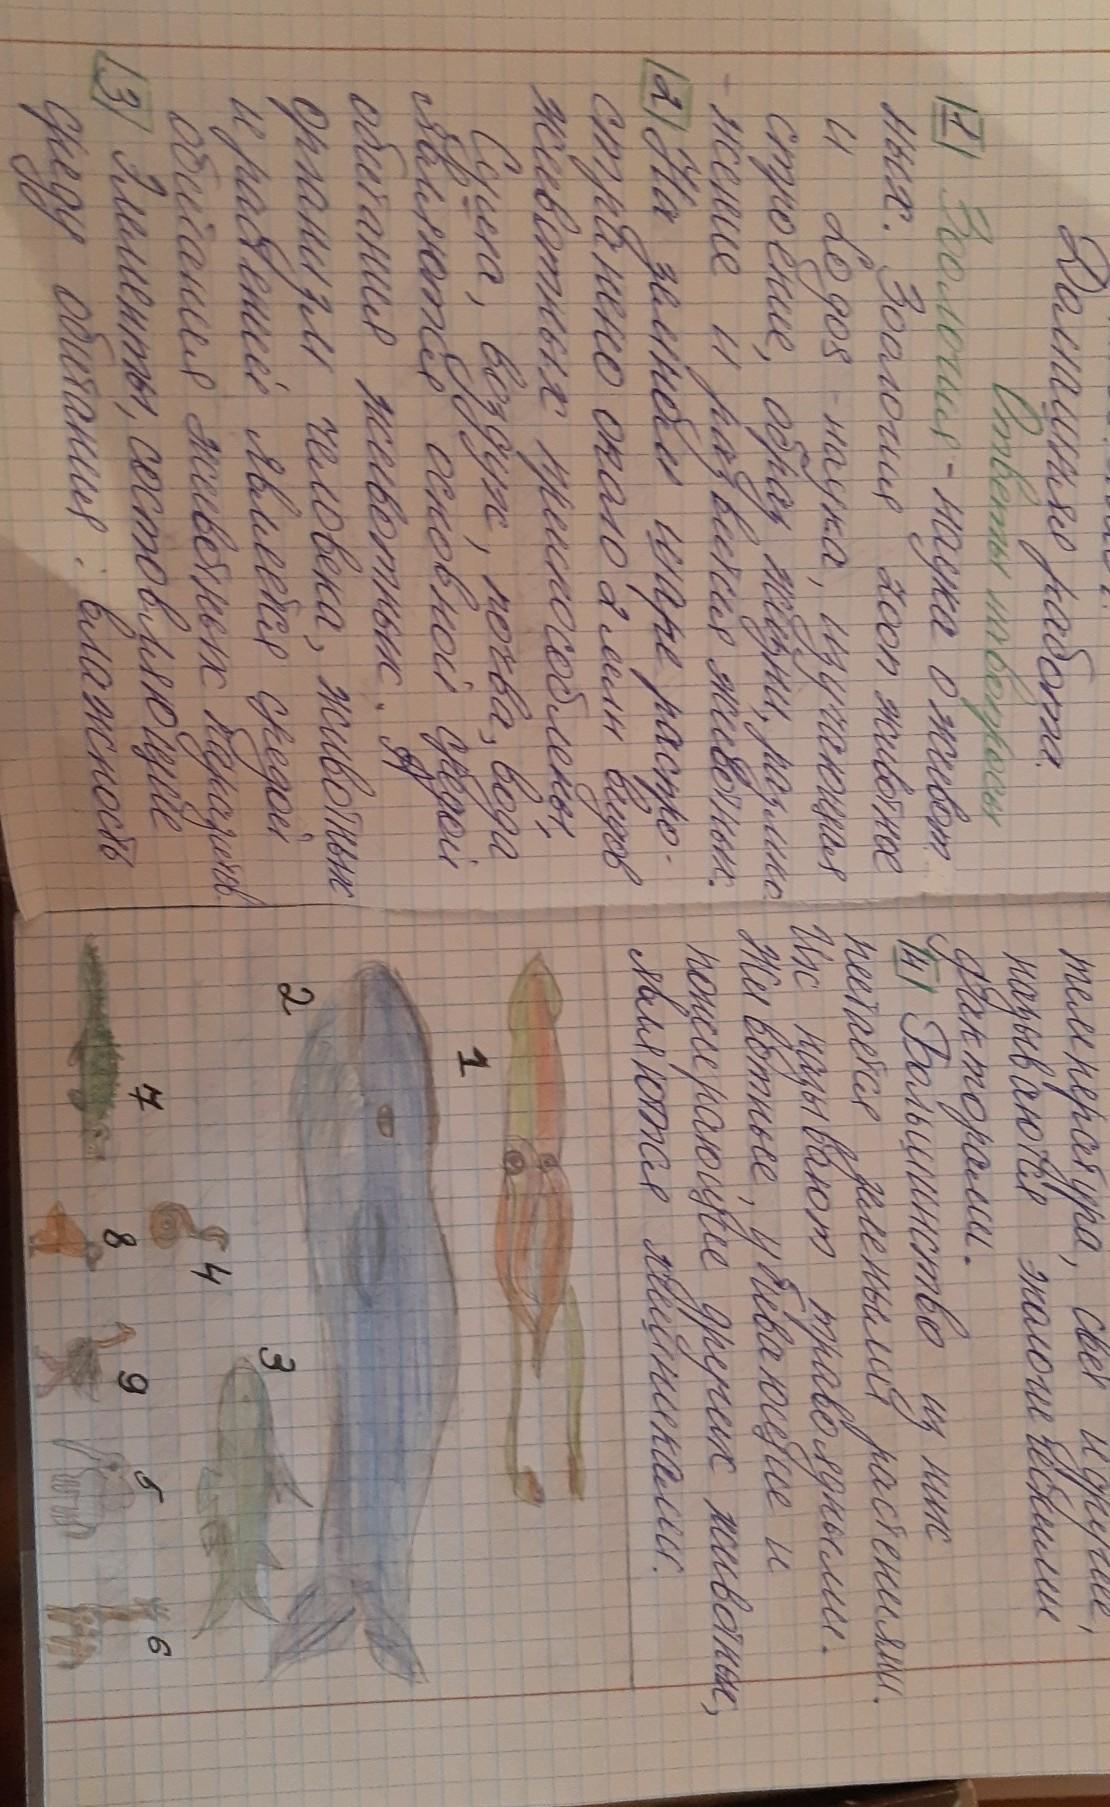 Домашняя работа.
Ответы на вопросы
1) Зоология - наука о живот
ных. Зоология zoon животное
и Logos - наука, изучающая
строение, образ жизни, размно
- жение и развитие животных.
2) На земном шаре распро-
странено около 2 млн видов
животных приспособлены,
Суша, воздух, почва, вода
являются основной средой
обитания животных.
организм человека, животных
и растений является средой
обитания животных паразитов.
3) Элементы, составляющие
среду обитания: влажность
температура, свет и другие,
называются экологическими
факторами.
4) Большинство из них
питается зелеными растениями.
Их называют травоядными.
Животные, убивающие и
пожирающие других животных,
являются хищниками.
1
2
3
4
7
8
9
5
6